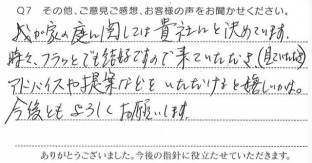 Q7 その他、ご意見ご感想、お客様の声をお聞かせください。
我が家の庭に関しては貴社にと決めています。
時々、フラッとでも結構ですので来ていただき(見ていただき)
アドバイスや提案などをいただけると嬉しいかな。
今後ともよろしくお願いします。
ありがとうございました。今後の指針に役立たせていただきます。